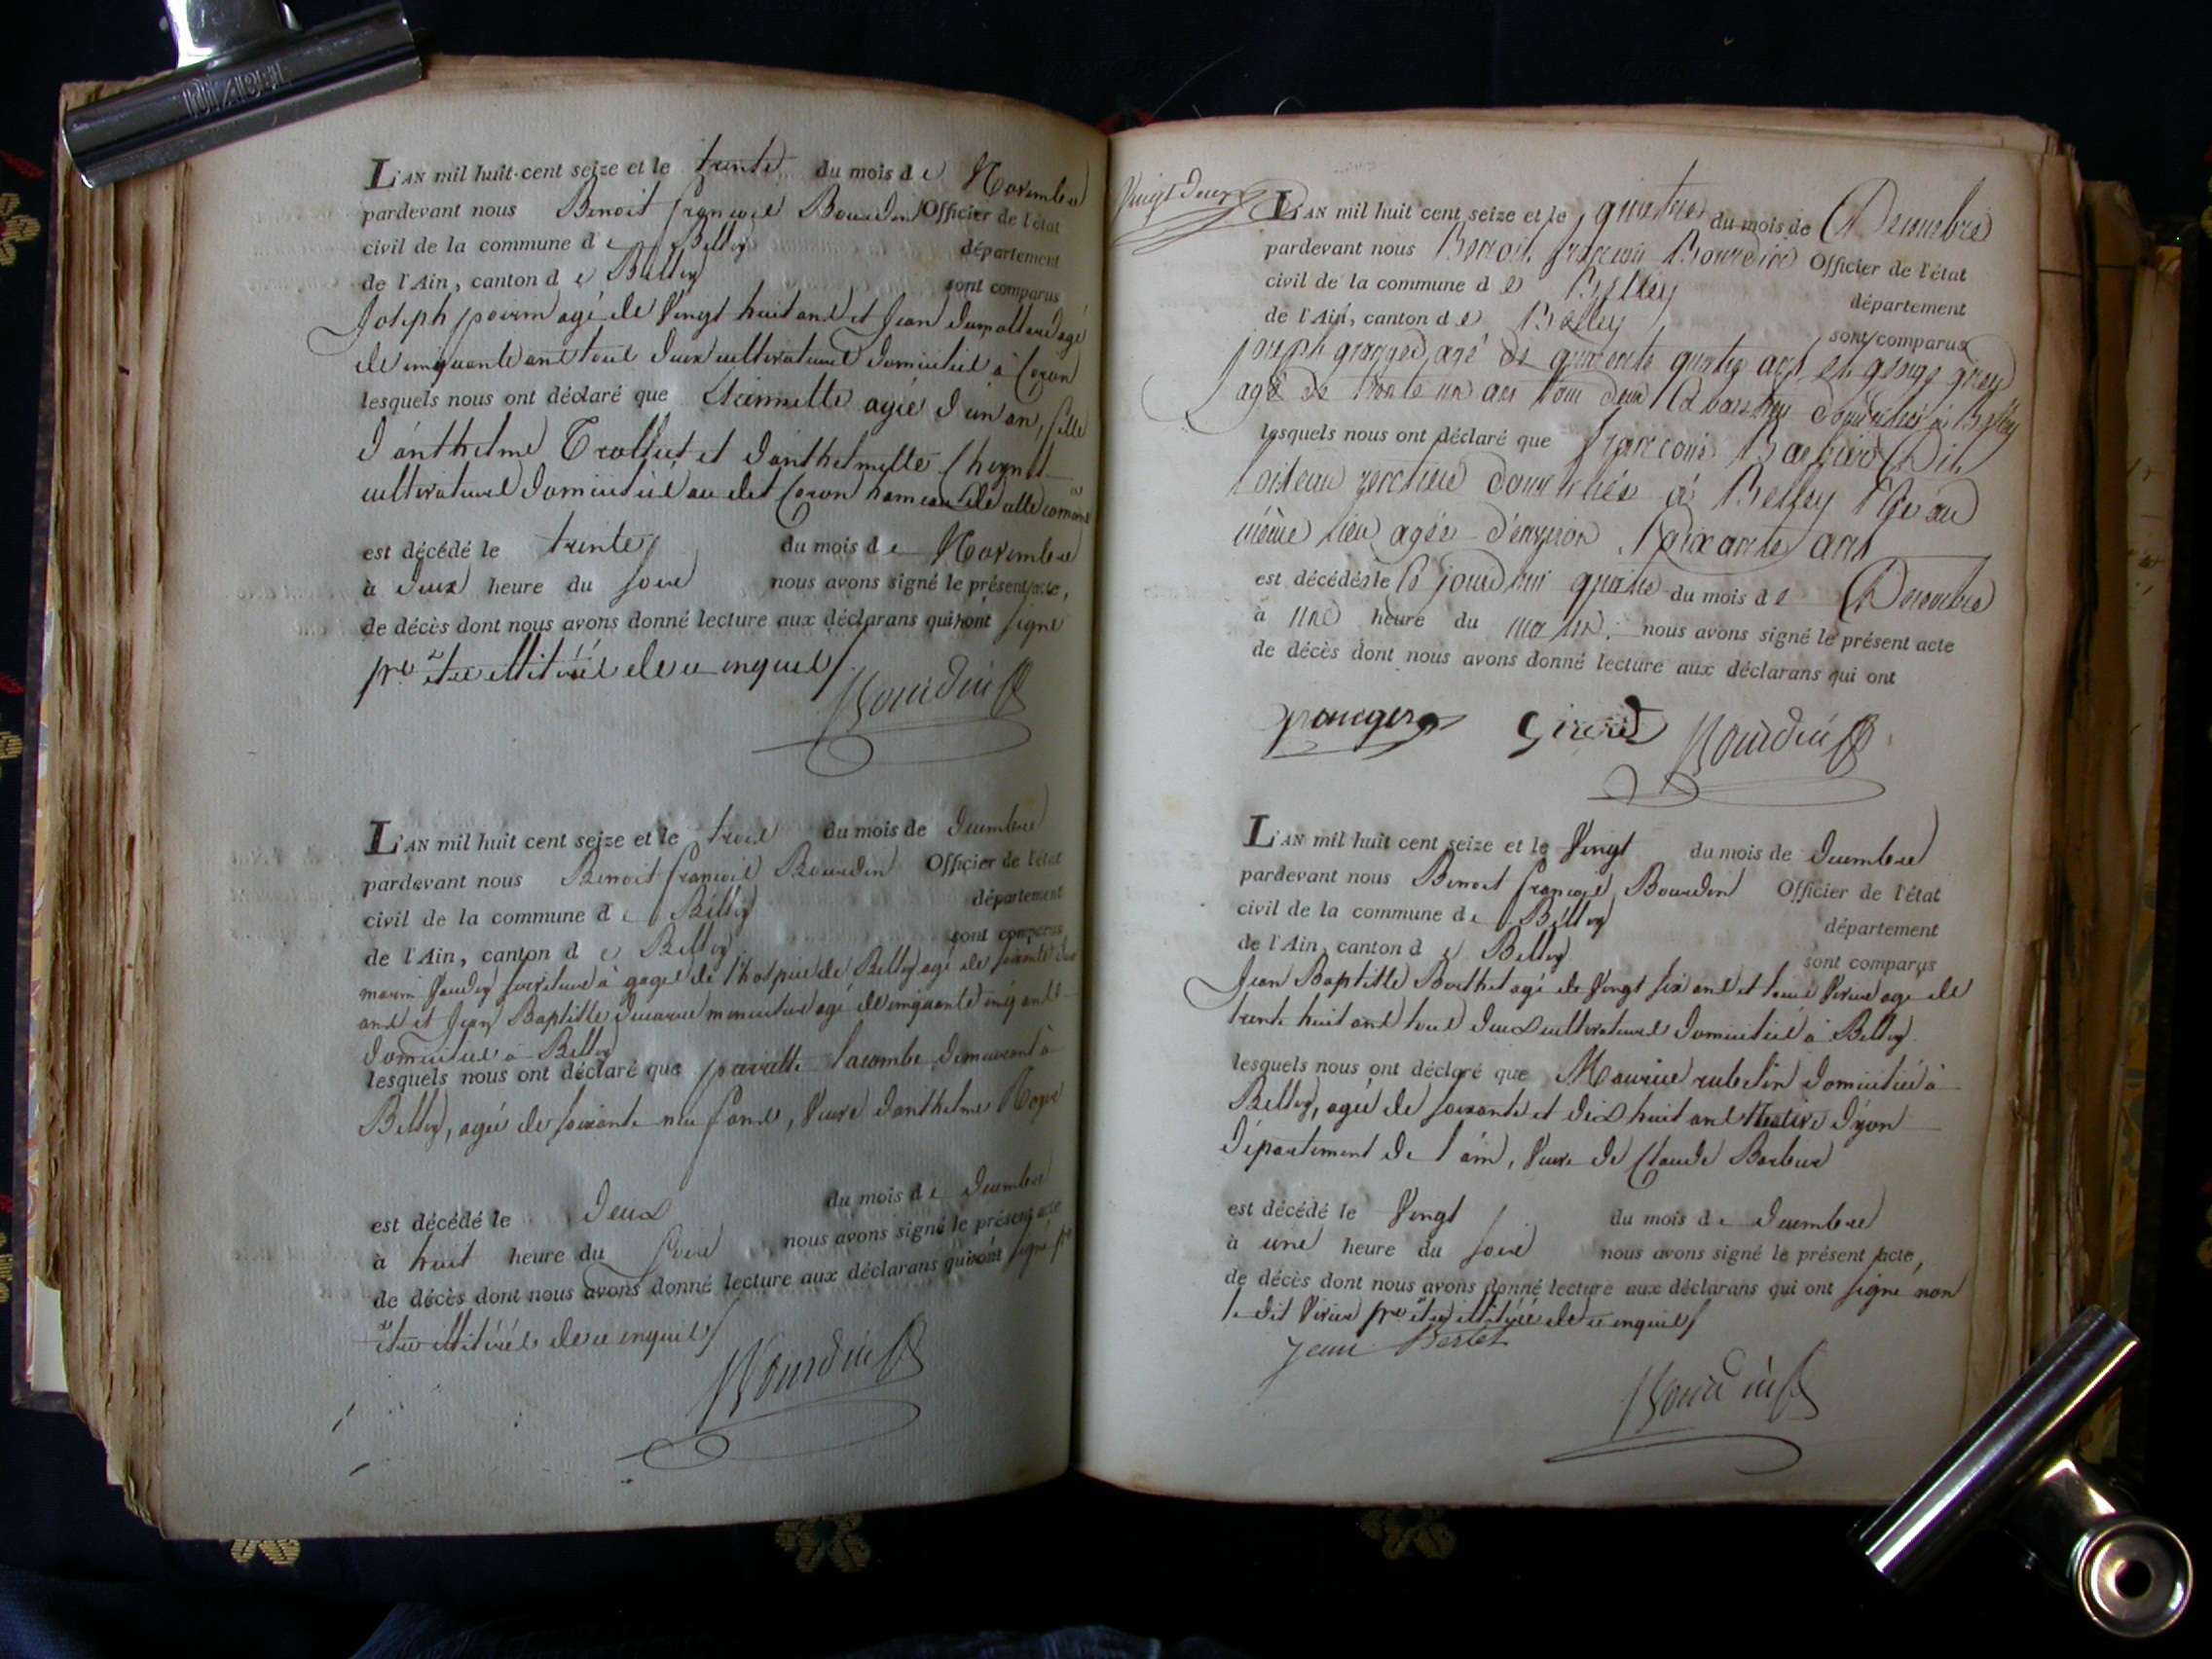 L'AN mil huit cent seize et le trente du mois de Novembre
pardevant nous Benoit françois Bourdin Officier de l'état
civil de la commune de Belley département
de l'Ain, canton de Belley sont comparus
Joseph agé de Vingt huit ans et Jean agé
de cinquante ans tous deux cultivateurs domiciliés à Coron
lesquels nous ont déclaré que agée d'un an, fille
d'anthelme Trolliet et d'anthelmette
cultivateurs domiciliés au dit Coron hameau de cette
est décédé le trente du mois de Novembre
à deux heure du soir nous avons signé le présent acte,
de décès dont nous avons donné lecture aux déclarans qui ont signé
de ce enquis
Bourdin
L'AN mil huit cent seize et le trois du mois de decembre
pardevant nous Benoit françois Bourdin Officier de l'état
civil de la commune de Belley département
de l'Ain, canton de Belley sont comparus
marin serviteur à gages de l'hospice de Belley agé de soixante deux
ans et Jean Baptiste menuisier agé de cinquante cinq ans
domiciliés à Belley
lesquels nous ont déclaré que pierrette lacombe demeurant à
Belley, agée de soixante neuf ans, Veuve d'anthelme
est décédé le deux du mois de decembre
à huit heure du soir nous avons signé le présent acte
de décès dont nous avons donné lecture aux déclarans qui ont signé
de ce enquis
Bourdin
Vingt deux
L'AN mil huit cent seize et le quatre du mois de Decembre
pardevant nous Benoit françois Bourdin Officier de l'état
civil de la commune de Belley département
de l'Ain, canton de Belley sont comparus
joseph granger, agé de quarante quatre ans et
agé de trente un ans tous deux domiciliés à Belley
lesquels nous ont déclaré que françois Dit
domicilié à Belley
même lieu agée d'environ soixante ans
est décédé le jourdhui quatre du mois de Decembre
à une heure du matin. nous avons signé le présent acte
de décès dont nous avons donné lecture aux déclarans qui ont
granger Bourdin
L'AN mil huit cent seize et le Vingt du mois de decembre
pardevant nous Benoit françois Bourdin Officier de l'état
civil de la commune de Belley département
de l'Ain, canton de Belley sont comparus
Jean Baptiste Berthet agé de Vingt six ans et agé de
trente huit ans tous deux cultivateurs domiciliés à Belley
lesquels nous ont déclaré que Maurice rubelin domiciliée à
Belley, agée de soixante et dix huit ans Native d'yon
département de l'ain, Veuve de Claude Barbier
est décédé le Vingt du mois de decembre
à une heure du soir nous avons signé le présent acte,
de décès dont nous avons donné lecture aux déclarans qui ont signé non
le dit de ce enquis
jean Bertet
Bourdin